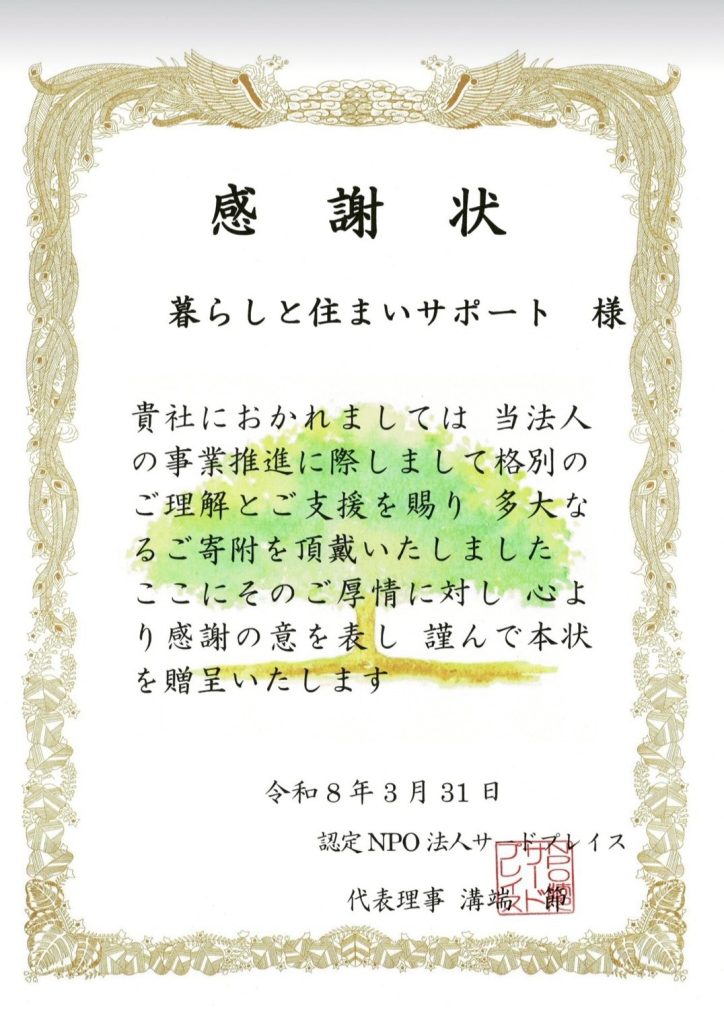 感謝状
暮らしと住まいサポート　様
貴社におかれましては 当法人
の事業推進に際しまして格別の
ご理解とご支援を賜り 多大な
るご寄附を頂戴いたしました
ここにそのご厚情に対し 心よ
り感謝の意を表し 謹んで本状
を贈呈いたします
令和8年3月31日
認定NPO法人サードプレイス
代表理事 溝端　節